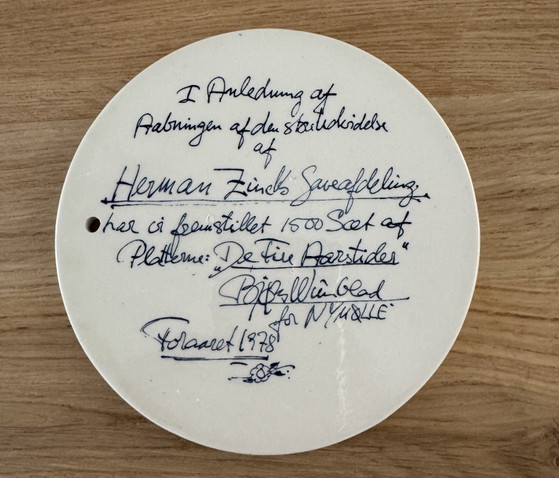 I Anledning af
Aabningen af den store udvidelse
af
Herman Zincks Gaveafdeling
har vi fremstillet 1500 Sæt af
Platterne: "De Fire Aarstider"
Bjørn Wiinblad
for NYMØLLE
Foraaret 1978